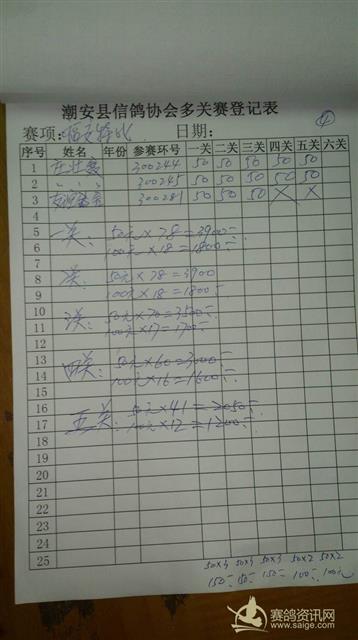 潮安县信鸽协会多关赛登记表
④
赛项: 日期:
序号 姓名 年份 参赛环号 一关 二关 三关 四关 五关 六关
1 庄壮喜 300244 50 50 50 50 50
2 〃 〃 〃 300245 50 50 50 50 50
3 300281 50 50 50 X X
4
5 一关: 50元×78=3900元
6 100元×18=1800元
7
8 二关: 50元×78=3900
9 100元×18=1800元
10 三关: 50元×70=3500元
11 100元×17=1700元
12
13 四关: 50元×60=3000元
14 100元×16=1600元
15
16 五关: 50元×41=2050元
17 100元×12=1200元
18
19
20
21
22
23
24
25
50×3 50×3 50×3 50×2 50×2
150元 150元 150元 100元 100元
赛鸽资讯网
www.saige.com